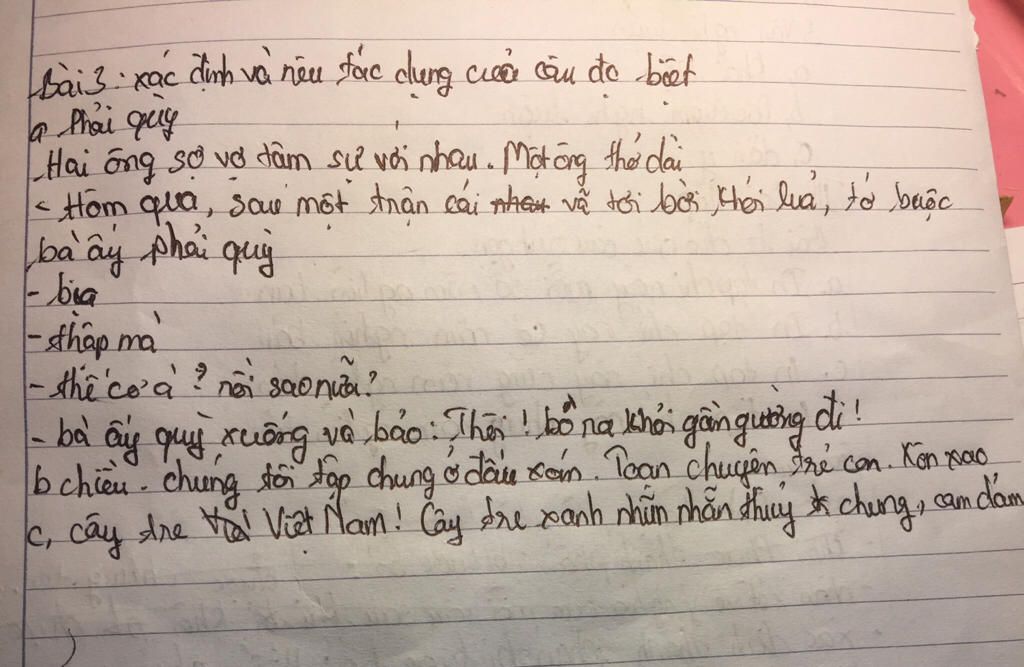 Bài 3: xác định và nêu tác dụng của câu đặc biệt
a Phải quỳ
Hai ông sợ vợ tâm sự với nhau. Một ông thở dài
< Hôm qua, sau một trận cãi vã tơi bời khói lửa, tớ buộc
bà ấy phải quỳ
- bịa
- thật mà
- thế cơ à? rồi sao nữa?
- bà ấy quỳ xuống và bảo: Thôi! bò ra khỏi gần giường đi!
b chiều. chúng tôi tập chung ở đầu xóm. Toàn chuyện trẻ con. Rôn xao
c, cây tre Việt Nam! Cây tre xanh nhũn nhặn thuỷ chung, can đảm